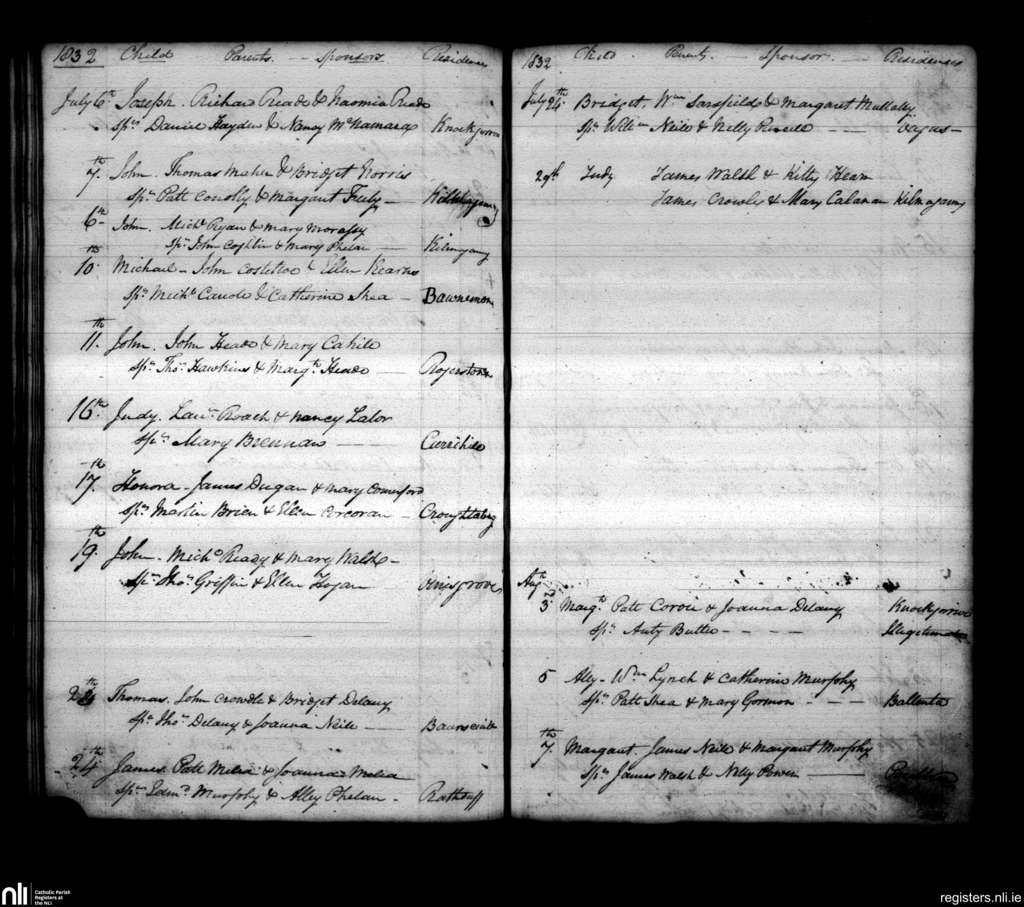 1832 Child Parents Sponsors Residences
July 6th Joseph. Richard Reade & Naomia Reade
Sprs Daniel Hayden & Nancy McNamara
7th John. Thomas Maher & Bridget Norris
Sprs Patt Conolly & Margaret
6th John. Michl Ryan & Mary
Sprs John Coghlin & Mary Phelan Kilmogany
10th Michael John & Ellen Kearns
Sprs Michl & Catherine Shea Bawnemon
11th John. John Heade & Mary Cahill
Sprs Thos Hawkins & Margt Heade Rogerstown
16th Judy. Lawce Roach & Nancy Lalor
Sprs Mary Brennan
17th Honora James Dugan & Mary Comerford
Sprs Martin Brien & Ellen Corcoran
19th John. Michl Ready & Mary Walshe
Sprs Thos Griffin & Ellen Hogan
24th Thomas. John Crowdle & Bridget Delany
Sprs Thos Delany & Joanna Neile
24th James Patt Melia & Joanna Melia
Sprs Edmd Murphy & Alley Phelan Rathduff
1832 Child Parents Sponsors Residences
July 24th Bridget. Wm Sarsfield & Margaret Mullally
Sprs & Nelly
29th Judy James Walsh & Kitty Hearn
James Crowley & Mary Calanan Kilmogany
Augt
3rd Margt Patt & Joanna Delany
Sprs Anty Butler Illegitimate
5 Aley Wm Lynch & Catherine Murphy
Sprs Patt Shea & Mary Gormon
7th Margaret. James Neile & Margaret Murphy
Sprs James Walsh & Nelly Power
nli Catholic Parish
Registers at
the NLI
registers.nli.ie